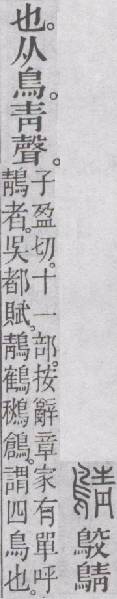 鶄鵁鶄
也。从鳥。青聲。
子盈切。十一部。按辭章家有單呼
鶄者。吳都賦。鶄鶴鶖鶬。謂四鳥也。